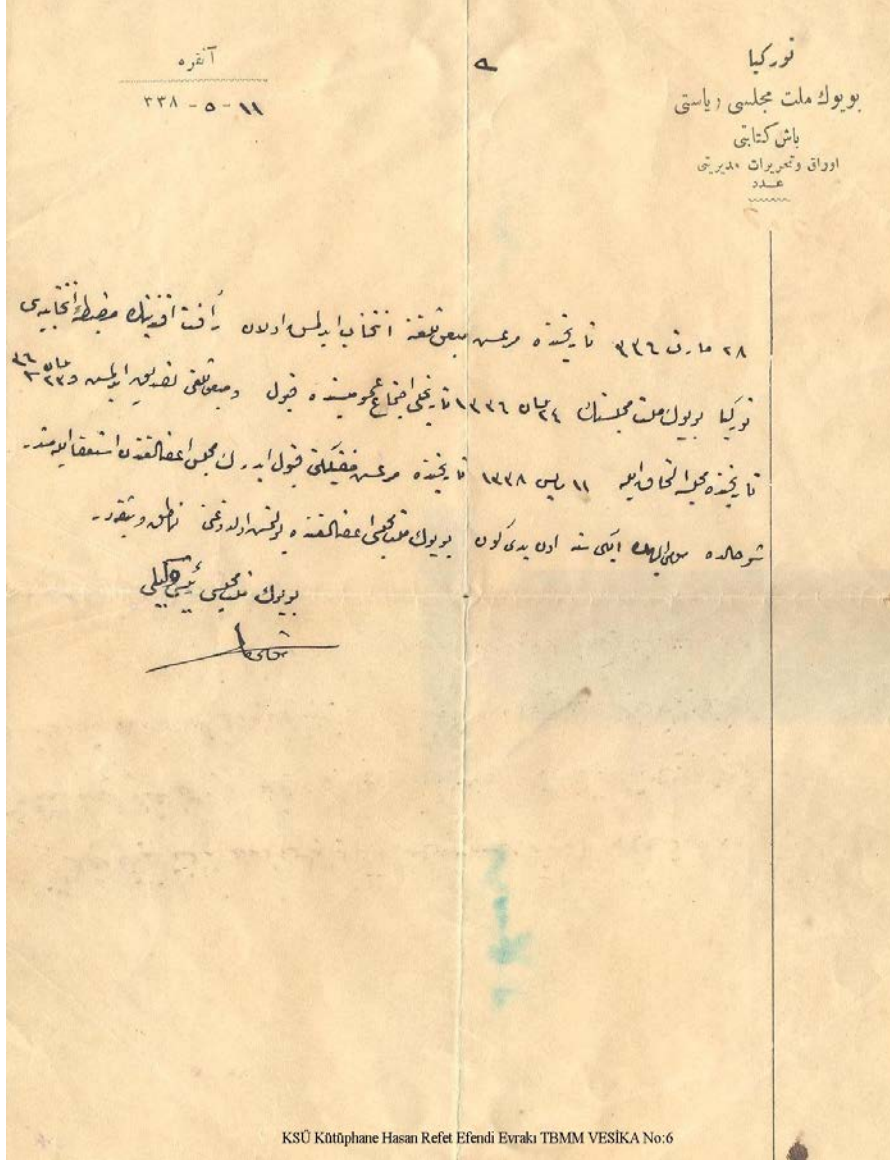 تورکیا
بویوك ملت مجلسی ریاستی
باش کتابتی
اوراق وتحریرات مدیریتی
عـدد
آنقره
١١ - ٥ - ٣٣٨
٢٨ مارت ٣٣٦ تاریخنده مرعش مبعوثلغنه انتخاب ایدلمش اولان رأفت افندینك مضبطهٔ انتخابیه‌سی
تورکیا بویوك ملت مجلسنك ٢٤ نیسان ١٣٣٦ تاریخلی اجتماع عمومیسنده قبول ومبعوثلغی تصدیق ایدلمش و ٢٣ نیسان ٣٣٦
تاریخنده مجلسه التحاق ایله ١١ مایس ١٣٣٨ تاریخنده مرعش قبول ایدرك مجلس اعضالغندن استعفا ایلمشدر
شو حالده مومی‌الیهك ایکی سنه اون یدی کون بویوك ملت مجلسی اعضالغنده بولنمش اولدوغنی ناطق وثیقه‌در
بویوك ملت مجلسی رئیس وکیلی
KSÜ Kütüphane Hasan Refet Efendi Evrakı TBMM VESİKA No:6